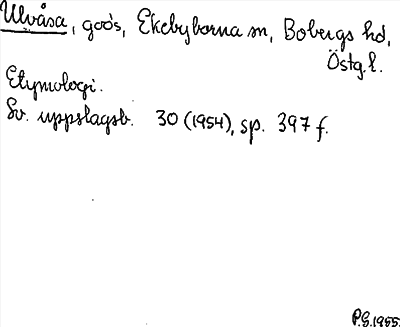 Ulvåsa, gods, Ekebyborna sn, Bobergs hd,
Östg.l.
Etymologi.
Sv. uppslagsb. 30 (1954), sp. 397 f.
P.G.1955